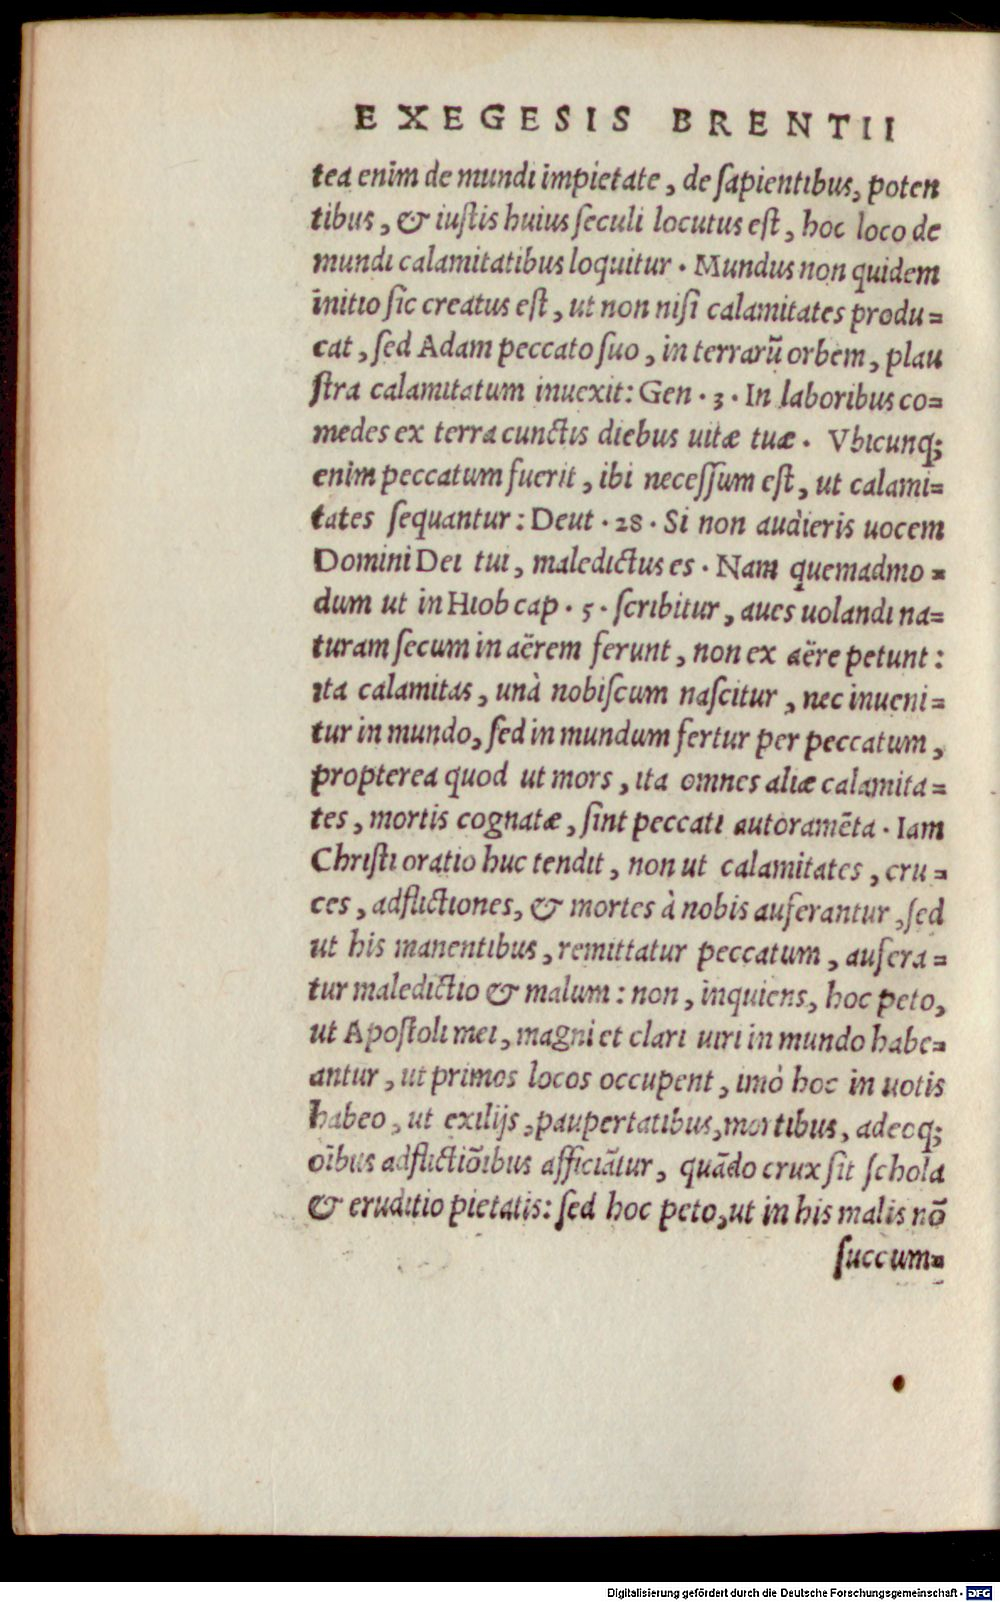 EXEGESIS BRENTII
tea enim de mundi impietate, de ſapientibus, poten
tibus, & iuſtis huius ſeculi locutus eſt, hoc loco de
mundi calamitatibus loquitur. Mundus non quidem
initio ſic creatus eſt, ut non niſi calamitates produ=
cat, ſed Adam peccato ſuo, in terrarũ orbem, plau
ſtra calamitatum inuexit: Gen. 3. In laboribus co=
medes ex terra cunctis diebus uitæ tuæ. Vbicunq;
enim peccatum fuerit, ibi neceſſum eſt, ut calami=
tates ſequantur: Deut. 28. Si non audieris uocem
Domini Dei tui, maledictus es. Nam quemadmo=
dum ut in Hiob cap. 5. ſcribitur, aues uolandi na=
turam ſecum in aërem ferunt, non ex aëre petunt:
ita calamitas, unà nobiſcum naſcitur, nec inueni=
tur in mundo, ſed in mundum fertur per peccatum,
propterea quod ut mors, ita omnes aliæ calamita=
tes, mortis cognatæ, ſint peccati autoramẽta. Iam
Chriſti oratio huc tendit, non ut calamitates, cru=
ces, adflictiones, & mortes à nobis auferantur, ſed
ut his manentibus, remittatur peccatum, aufera=
tur maledictio & malum: non, inquiens, hoc peto,
ut Apoſtoli mei, magni et clari uiri in mundo habe=
antur, ut primos locos occupent, imò hoc in uotis
habeo, ut exilijs, paupertatibus, mortibus, adeoq;
oĩbus adflictiõibus afficiãtur, quãdo crux ſit ſchola
& eruditio pietatis: ſed hoc peto, ut in his malis nõ
ſuccum=
Digitalisierung gefördert durch die Deutsche Forschungsgemeinschaft - DFG